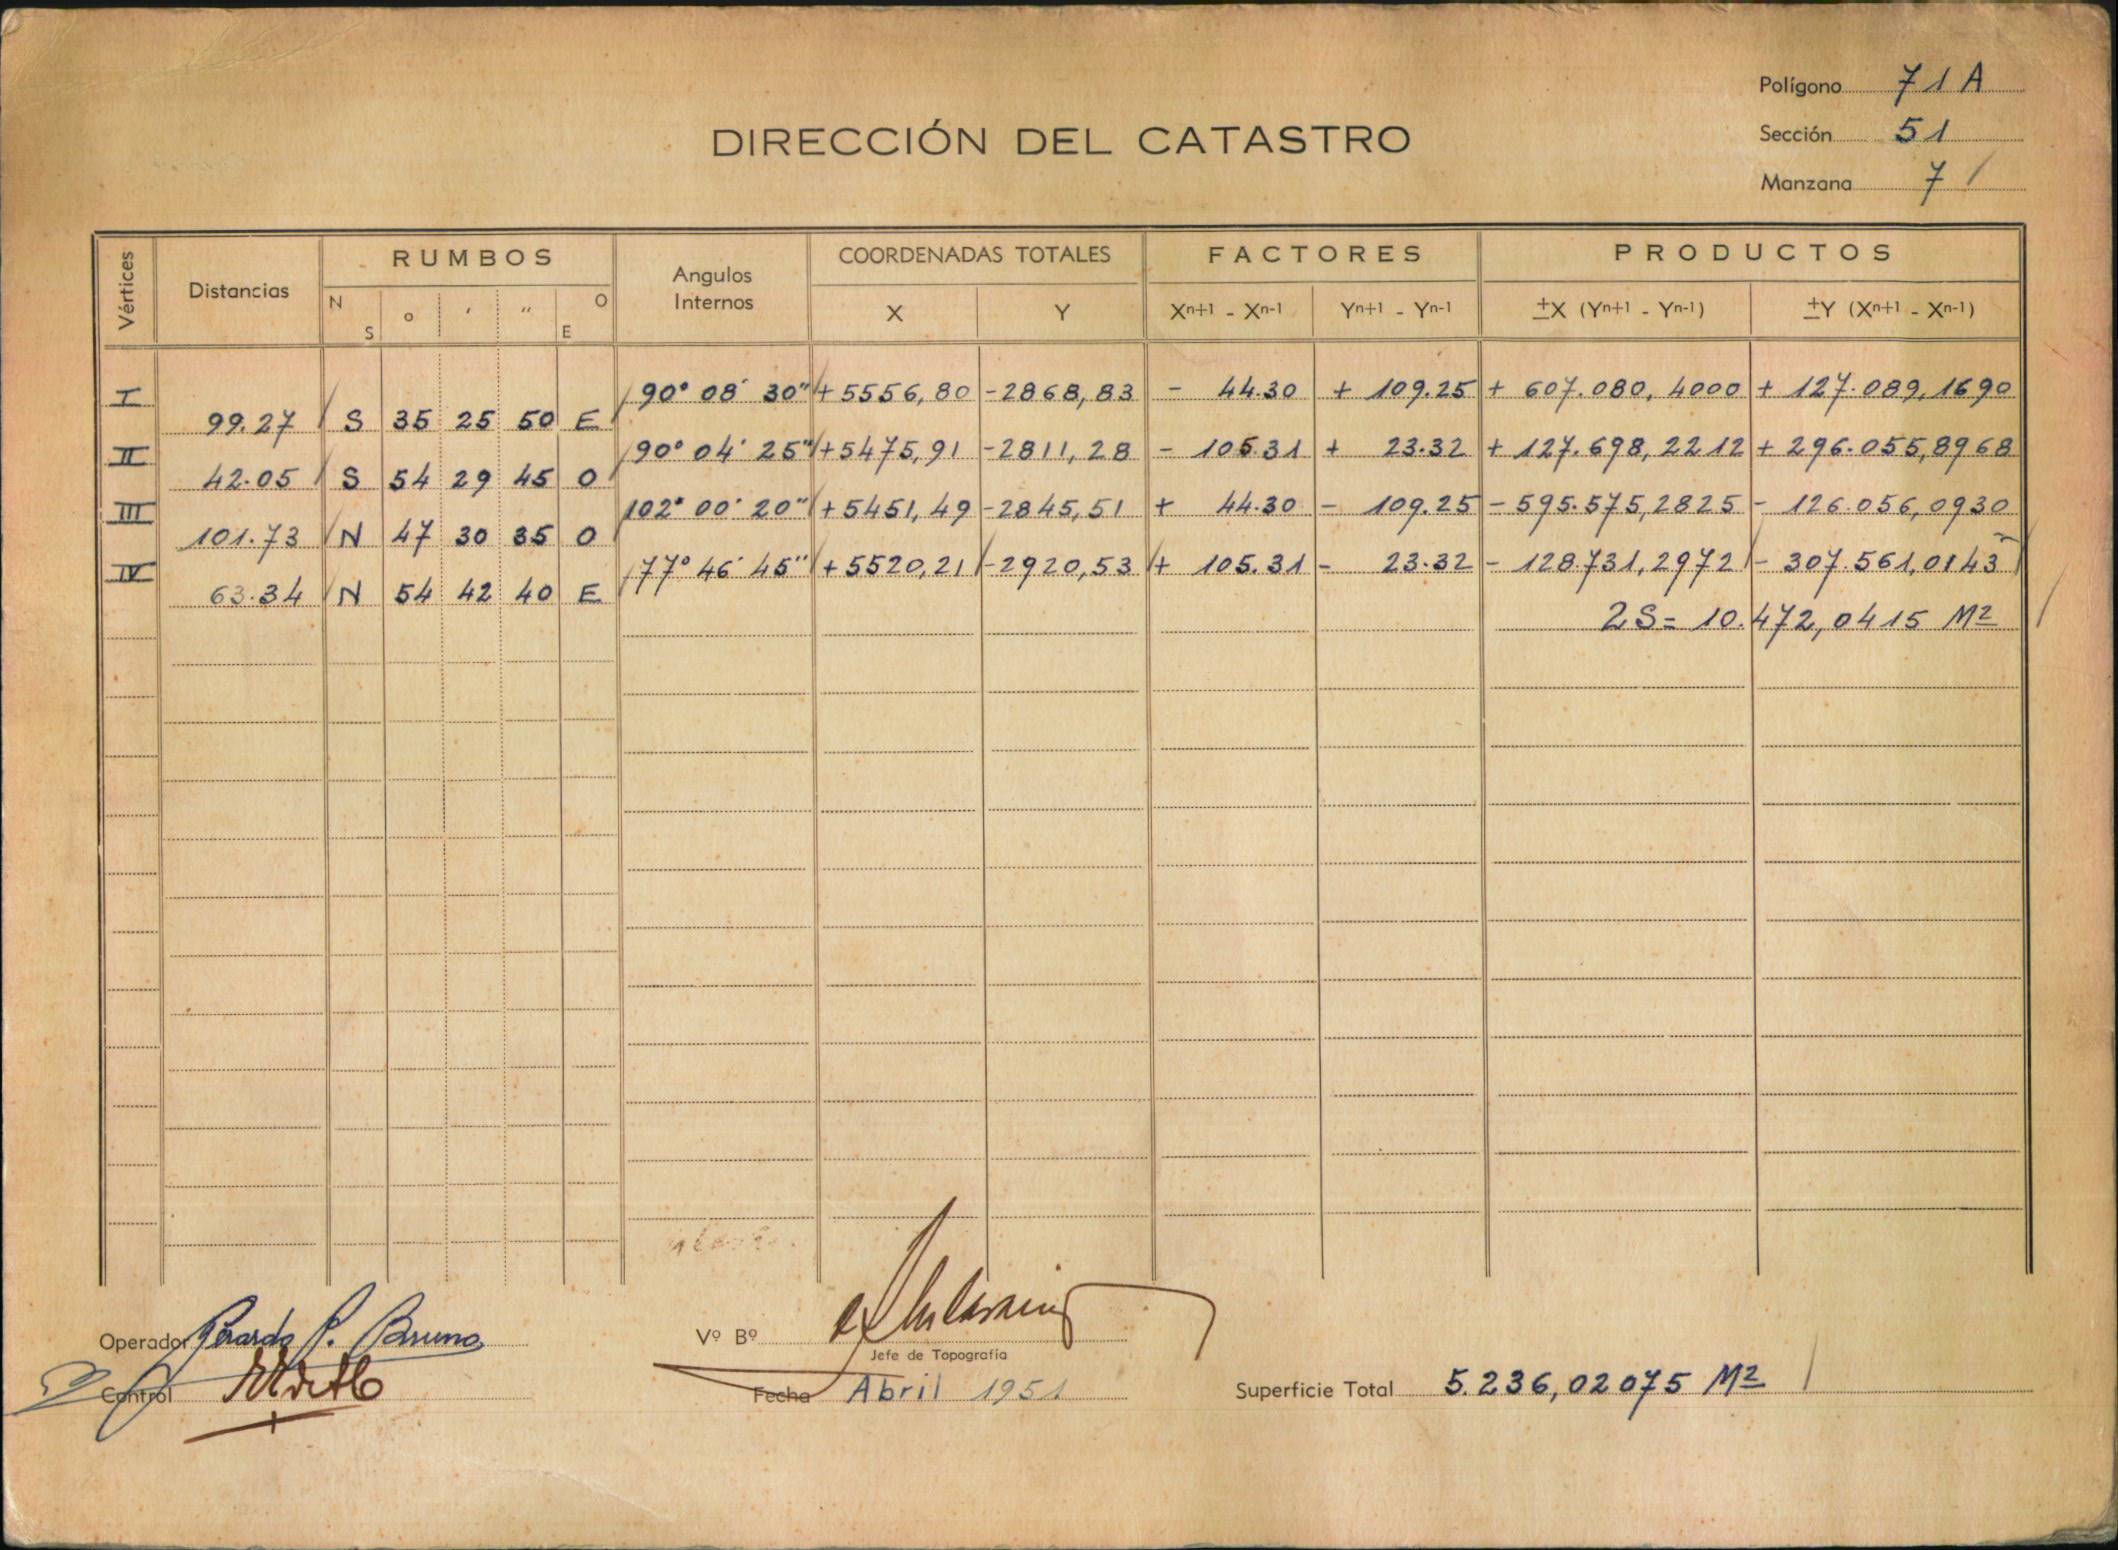 Polígono 71 A
DIRECCIÓN DEL CATASTRO
Sección 51
Manzana 7
Vértices Distancias RUMBOS Angulos Internos COORDENADAS TOTALES FACTORES PRODUCTOS
N S o ' " O E X Y Xn+1 - Xn-1 Yn+1 - Yn-1 ±X (Yn+1 - Yn-1) ±Y (Xn+1 - Xn-1)
I 90° 08' 30" +5556,80 -2868,83 - 44.30 + 109.25 + 607.080,4000 + 127.089,1690
99.27 S 35 25 50 E
II 90° 04' 25" +5475,91 -2811,28 - 105.31 + 23.32 + 127.698,2212 + 296.055,8968
42.05 S 54 29 45 O
III 102° 00' 20" +5451,49 -2845,51 + 44.30 - 109.25 - 595.575,2825 - 126.056,0930
101.73 N 47 30 35 O
IV 77° 46' 45" +5520,21 -2920,53 + 105.31 - 23.32 - 128.731,2972 - 307.561,0143
63.34 N 54 42 40 E
2S= 10.472,0415 M2
Operador Gerardo P. Bruno
Vº Bº
Jefe de Topografía
Control
Fecha Abril 1951
Superficie Total 5.236,02075 M2